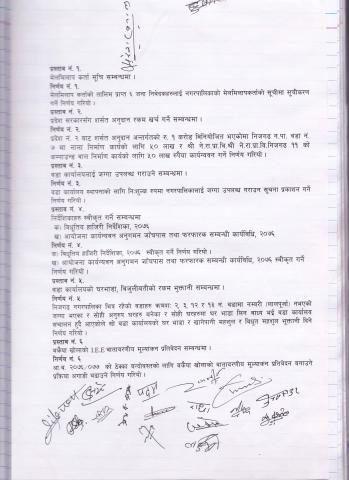 प्रस्ताव नं. १.
मेलमिलाप कर्ता सूचि सम्बन्धमा ।
निर्णय नं. १.
मेलमिलाप कर्ताको तालिम प्राप्त ६ जना निवेदकहरुलाई नगरपालिकाको मेलमिलापकर्ताको सूचीमा सूचीकरण
गर्ने निर्णय गरियो ।
प्रस्ताव नं. २.
प्रदेश सरकारसँग शर्सत अनुदान रकम खर्च गर्ने सम्बन्धमा ।
निर्णय नं. २.
प्रदेश नं. २ बाट शर्सत अनुदान अन्तर्गतको रु. १ करोड बिनियोजित भएकोमा निजगढ न.पा. वडा नं.
७ मा नाला निर्माण कार्यको लागि ५० लाख र श्री ने.रा.प्रा.वि.श्री ने.रा.प्रा.वि.निजगढ ११ को
कम्पाउन्ड वाल निर्माण कार्यको लागि ५० लाख रुपैया कार्यन्वयन गर्ने निर्णय गरियो ।
प्रस्ताव नं. ३.
वडा कार्यालयलाई जग्गा उपलब्ध गराउने सम्बन्धमा ।
निर्णय नं. ३.
वडा कार्यालय स्थापनाको लागि निःशुल्क रुपमा नगरपालिकालाई जग्गा उपलब्ध गराउन सूचना प्रकाशन गर्ने
निर्णय गरियो ।
प्रस्ताव नं. ४.
निर्देशिकाहरु स्वीकृत गर्ने सम्बन्धमा
कः विद्युतिय हाजिरी निर्देशिका, २०७६
खः आयोजना कार्यन्वयन अनुगमन जाँचपास तथा फरफारक सम्बन्धी कार्यविधि, २०७६
निर्णय नं. ४.
कः विद्युतिय हाजिरी निर्देशिका, २०७६ स्वीकृत गर्ने निर्णय गरियो ।
खः आयोजना कार्यन्वयन अनुगमन जाँचपास तथा फरफारक सम्बन्धी कार्यविधि, २०७६ स्वीकृत गर्ने
निर्णय गरियो ।
प्रस्ताव नं. ५.
वडा कार्यालयको घरभाडा, बिजुलीवत्तीको रकम भुक्तानी सम्बन्धमा ।
निर्णय नं. ५
निजगढ नगरपालिका भित्र रहेको वडाहरु क्रमशः २, ३, १२ र १३ नं. वडामा नम्बरी (लालपूर्जा) नभएको
जग्गा भएका र सोही अनुरुप घरहरु बनेका र सोही घरहरुमा घर भाडा लिन बाध्य भई वडा कार्यालय
संचालन हुदै आएकोले सो वडा कार्यालयको घर भाडा र खानेपानी महशुल र विधुत महशुल भुक्तानी दिने
निर्णय गरियो ।
प्रस्ताव नं. ६
बकैया खोलाको I.E.E वातावरणीय मुल्यांकन प्रतिवेदन सम्बन्धमा ।
निर्णय नं. ६
आ.ब. २०७६/०७७ को ठेक्का बन्दोवस्तको लागि बकैया खोलाको वातावरणीय मुल्यांकन प्रतिवेदन बनाउने
प्रकिया अगाडी बढाउने निर्णय गरियो ।